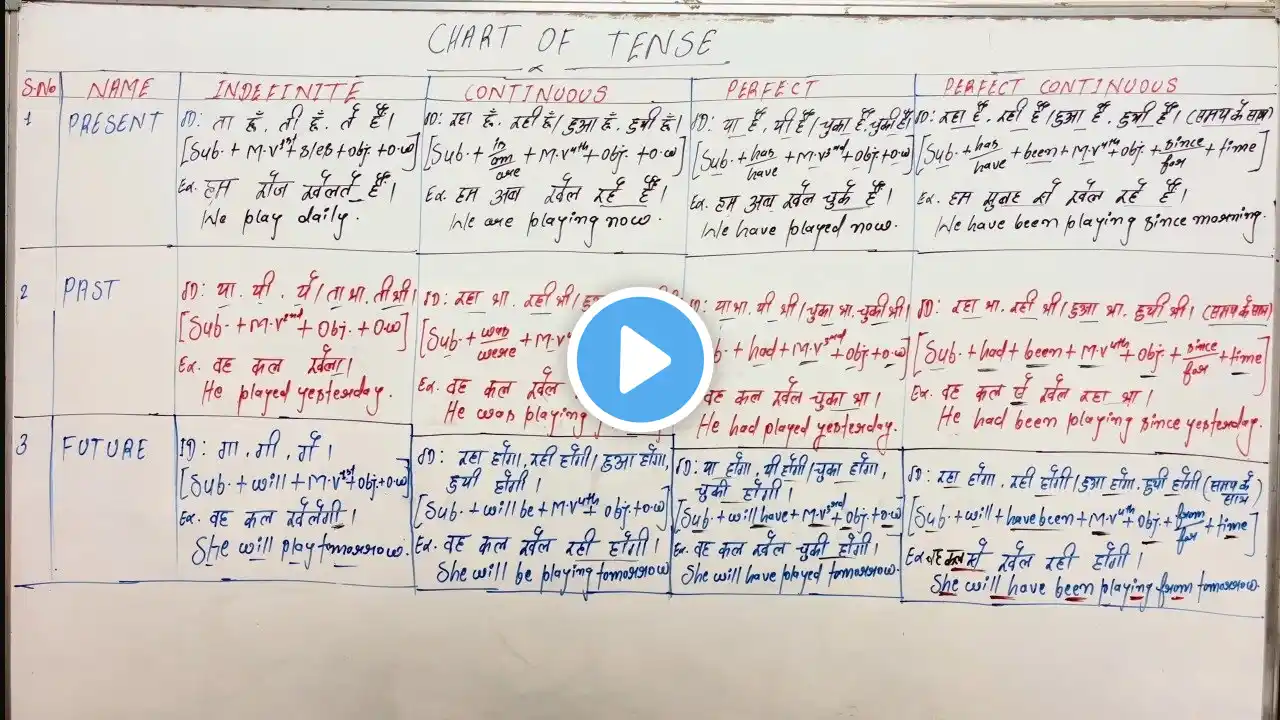 CHART OF TENSE
S.No NAME INDEFINITE CONTINUOUS PERFECT PERFECT CONTINUOUS
1 PRESENT
ID: ता हूँ, ती हूँ, ते हैं।
[Sub. + M.V 1st + s/es + obj + o.w]
Ex. हम रोज खेलते हैं।
We play daily.
ID: रहा हूँ, रही हूँ / हुआ हूँ, हुयी हूँ।
[Sub. + is/am/are + M.V 4th + Obj. + o.w]
Ex. हम अब खेल रहे हैं।
We are playing now.
ID: या है, यी है / चुका है, चुकी है।
[Sub. + has/have + M.V 3rd + Obj + o.w]
Ex. हम अब खेल चुके हैं।
We have played now.
ID: रहा है, रही है / हुआ है, हुयी है। (समय के साथ)
[Sub. + has/have + been + M.V 4th + Obj + since/for + time]
Ex. हम सुबह से खेल रहे हैं।
We have been playing since morning.
2 PAST
ID: या, यी, ये / ता था, ती थी।
[Sub. + M.V 2nd + Obj. + O.w]
Ex. वह कल खेला।
He played yesterday.
ID: रहा था, रही थी
[Sub. + was/were + M.V
Ex. वह कल खेल
He was playing
ID: या था, यी थी / चुका था, चुकी थी।
+ had + M.V 3rd + Obj + o.w]
वह कल खेल चुका था।
He had played yesterday.
ID: रहा था, रही थी / हुआ था, हुयी थी। (समय के साथ)
[Sub. + had + been + M.V 4th + Obj. + since/for + time]
Ex. वह कल से खेल रहा था।
He had been playing since yesterday.
3 FUTURE
ID: गा, गी, गे।
[Sub. + will + M.V 1st + obj. + o.w]
Ex. वह कल खेलेगी।
She will play tomorrow.
ID: रहा होगा, रही होगी / हुआ होगा,
हुयी होगी।
[Sub. + will be + M.V 4th + Obj + o.w]
Ex. वह कल खेल रही होगी।
She will be playing tomorrow
ID: या होगा, यी होगी / चुका होगा,
चुकी होगी।
[Sub. + will have + M.V 3rd + Obj + o.w]
Ex. वह कल खेल चुकी होगी।
She will have played tomorrow.
ID: रहा होगा, रही होगी / हुआ होगा, हुयी होगी (समय के साथ)
[Sub. + will + have been + M.V 4th + Obj. + from/for + time]
Ex. वह कल से खेल रही होगी।
She will have been playing from tomorrow.